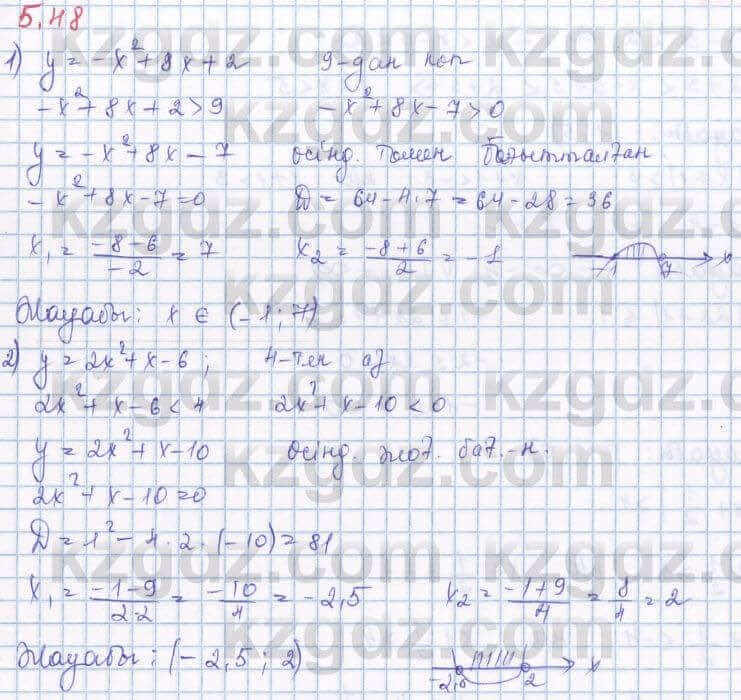 5.48
1) y = -x²+8x+2 9-дан көп
-x²+8x+2>9 -x²+8x-7>0
y = -x²+8x-7 өсінд. төмен бағытталған
-x²+8x-7=0 D = 64-4·7 = 64-28 = 36
x₁ = (-8-6)/(-2) = 7 x₂ = (-8+6)/2 = -1 -1 7 x
Жауабы: x ∈ (-1; 7)
2) y = 2x²+x-6; 4-тен аз
2x²+x-6<4 2x²+x-10<0
y = 2x²+x-10 өсінд. жоғ. бағ.-н.
2x²+x-10=0
D = 1²-4·2·(-10) = 81
x₁ = (-1-9)/(2·2) = (-10)/4 = -2,5 x₂ = (-1+9)/4 = 8/4 = 2
Жауабы: (-2,5; 2) -2,5 2 x
kzgdz.com